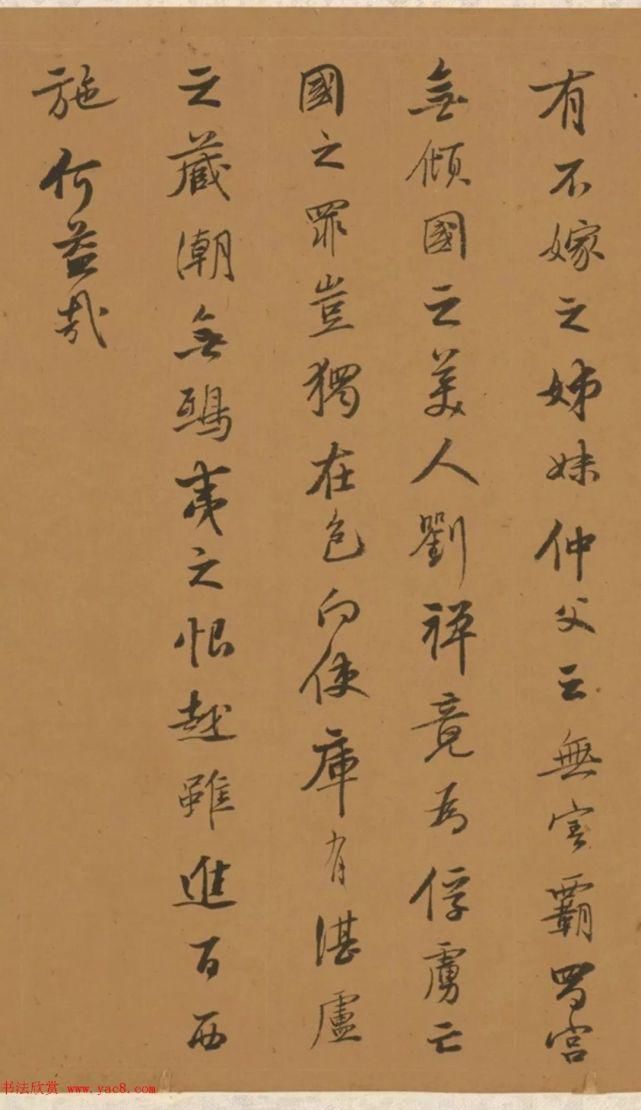 有不嫁之姊妹仲父云無害霸蜀宮
無傾國之美人劉禅竟為俘虜亡
國之罪豈獨在色向使庫有湛盧
之藏潮無鴟夷之恨越雖進百西
施何益哉
书法欣赏 www.yac8.com